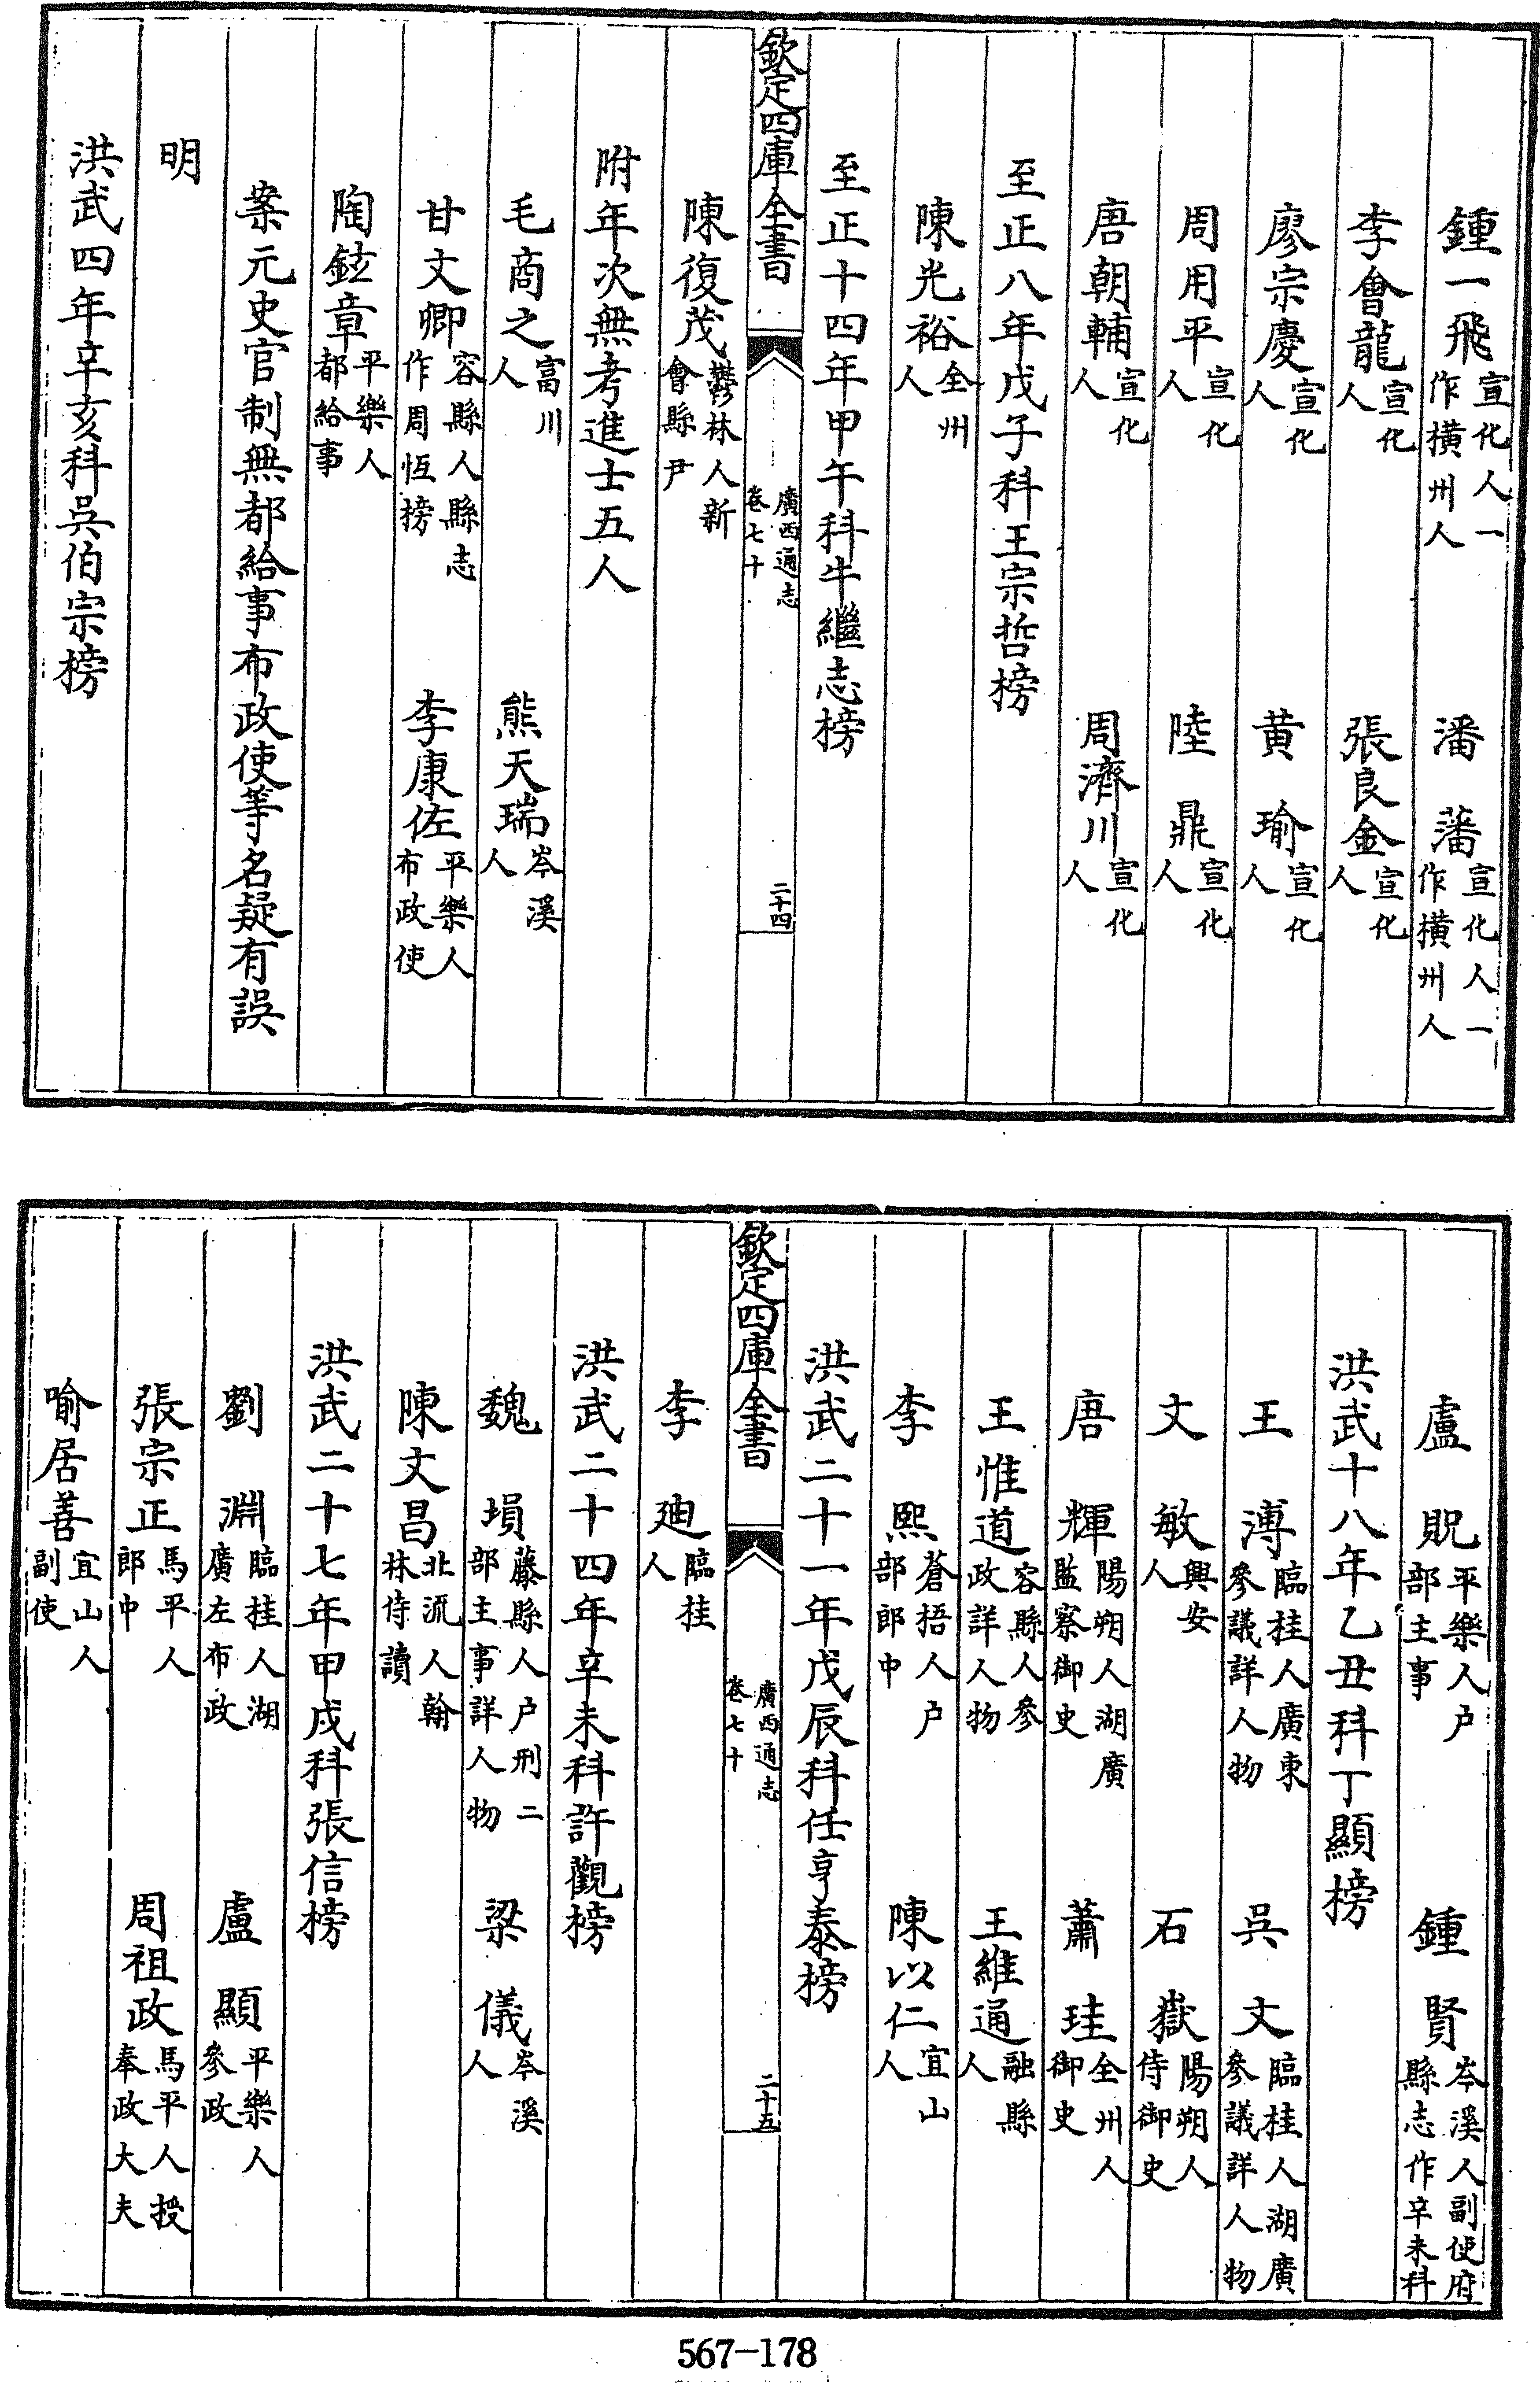 鍾一飛宣化人一作橫州人　潘藩宣化人一作橫州人
李會龍宣化人　張良金宣化人
廖宗慶宣化人　黄瑜宣化人
周用平宣化人　陸鼎宣化人
唐朝輔宣化人　周濟川宣化人
至正八年戊子科王宗哲榜
陳光裕全州人
至正十四年甲午科牛繼志榜
欽定四庫全書　廣西通志卷七十　二十四
陳復茂鬱林人新會縣尹
附年次無考進士五人
毛商之富川人　熊天瑞岑溪人
甘文卿容縣人縣志作周恆榜　李康佐平樂人布政使
陶鉉章平樂人都給事
案元史官制無都給事布政使等名疑有誤
明
洪武四年辛亥科吳伯宗榜
盧貺平樂人户部主事　鍾賢岑溪人副使府縣志作辛未科
洪武十八年乙丑科丁顯榜
王溥臨桂人廣東參議詳人物　吳文臨桂人湖廣參議詳人物
文敏興安人　石嶽陽朔人侍御史
唐輝陽朔人湖廣監察御史　蕭珪全州人御史
王惟道容縣人參政詳人物　王維通融縣人
李熙蒼梧人户部郎中　陳以仁宜山人
洪武二十一年戊辰科任亨泰榜
欽定四庫全書　廣西通志卷七十　二十五
李廸臨桂人
洪武二十四年辛未科許觀榜
魏塤藤縣人户刑二部主事詳人物　梁儀岑溪人
陳文昌北流人翰林侍讀
洪武二十七年甲戌科張信榜
劉淵臨桂人湖廣左布政　盧顯平樂人參政
張宗正馬平人郎中　周祖政馬平人授奉政大夫
喻居善宜山人副使
567-178